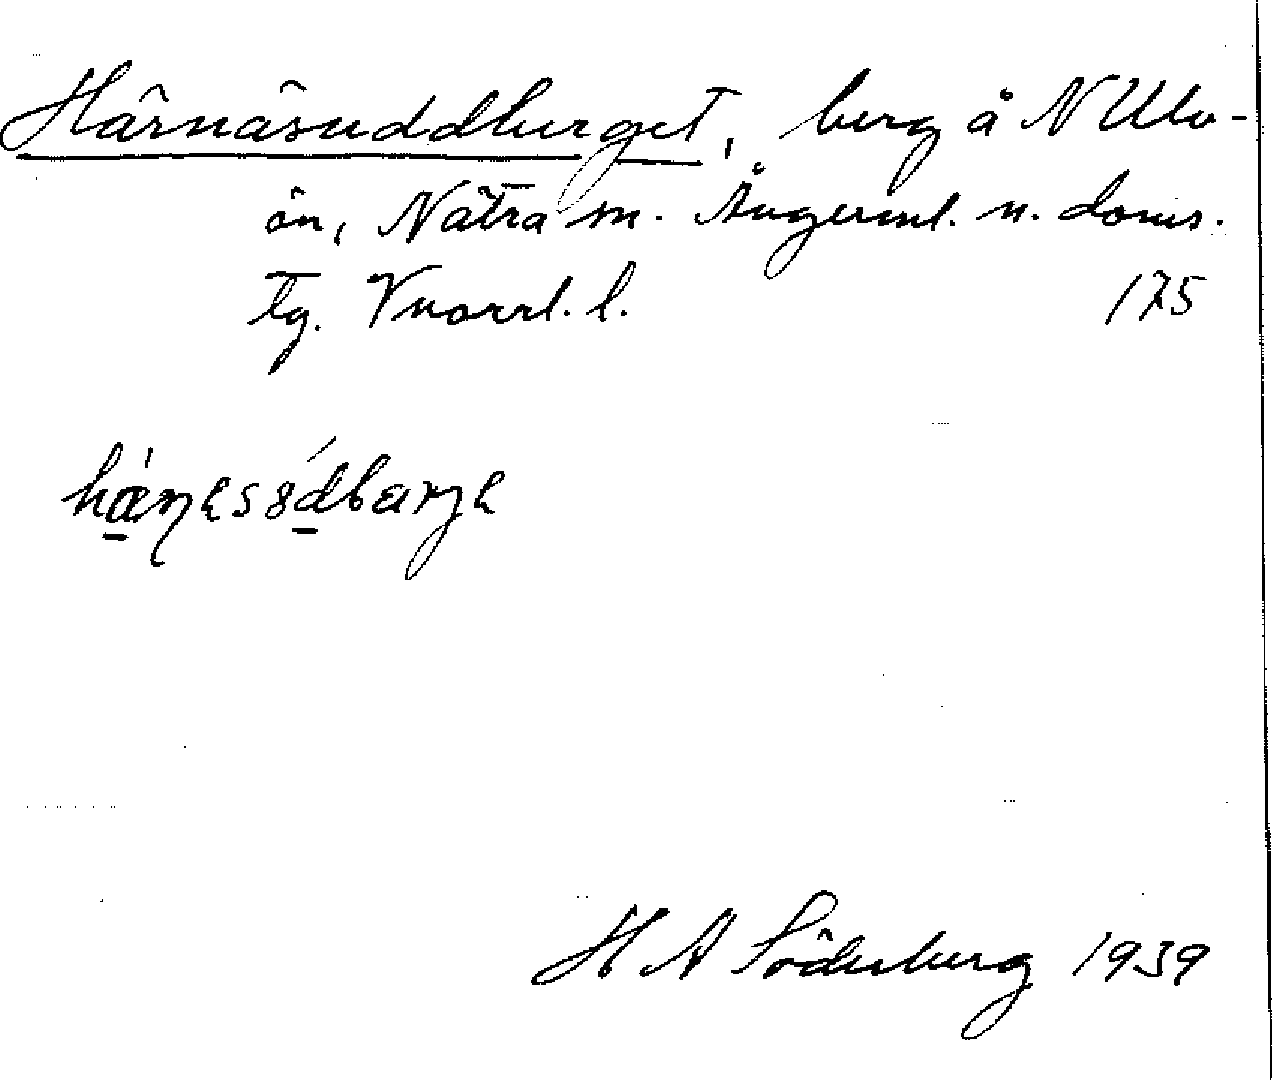 Härnäsuddberget, berg å N Ulv-
ön, Nätra sn. Ångerml. n. doms.
tg. Vnorrl. l. 175
H A Söderberg 1939